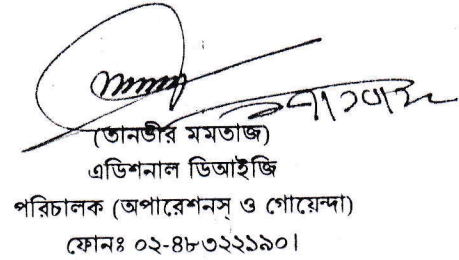 (তানভীর মমতাজ)
এডিশনাল ডিআইজি
পরিচালক (অপারেশনস্ ও গোয়েন্দা)
ফোনঃ ০২-৪৮৩২২১৯০।